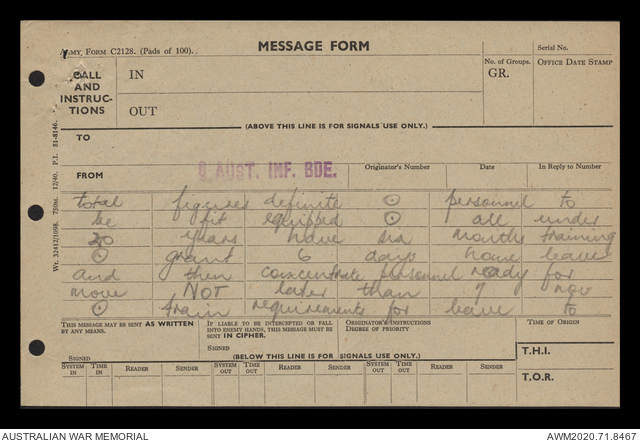 Army Form C2128. (Pads of 100).
MESSAGE FORM
Serial No.
CALL AND INSTRUC- TIONS
IN
OUT
No. of Groups.
GR.
OFFICE DATE STAMP
(ABOVE THIS LINE IS FOR SIGNALS USE ONLY.)
TO
FROM
AUST. INF. BDE.
Originator's Number
Date
In Reply to Number
total figures definite ⊙ personnel to
be fit equipped ⊙ all under
20 years have six months training
⊙ grant 6 days home leave
and then concentrate personnel ready for
move NOT later than 7 nov
⊙ train requirements for leave to
THIS MESSAGE MAY BE SENT AS WRITTEN BY ANY MEANS.
IF LIABLE TO BE INTERCEPTED OR FALL INTO ENEMY HANDS, THIS MESSAGE MUST BE SENT IN CIPHER.
ORIGINATOR'S INSTRUCTIONS
DEGREE OF PRIORITY
TIME OF ORIGIN
SIGNED
SIGNED
(BELOW THIS LINE IS FOR SIGNALS USE ONLY.)
T.H.I.
SYSTEM IN
TIME IN
READER
SENDER
SYSTEM OUT
TIME OUT
READER
SENDER
SYSTEM OUT
TIME OUT
READER
SENDER
T.O.R.
Wt. 32412/1098. 750M. 12/40. P.I. 51-8146.
AUSTRALIAN WAR MEMORIAL
AWM2020.71.8467